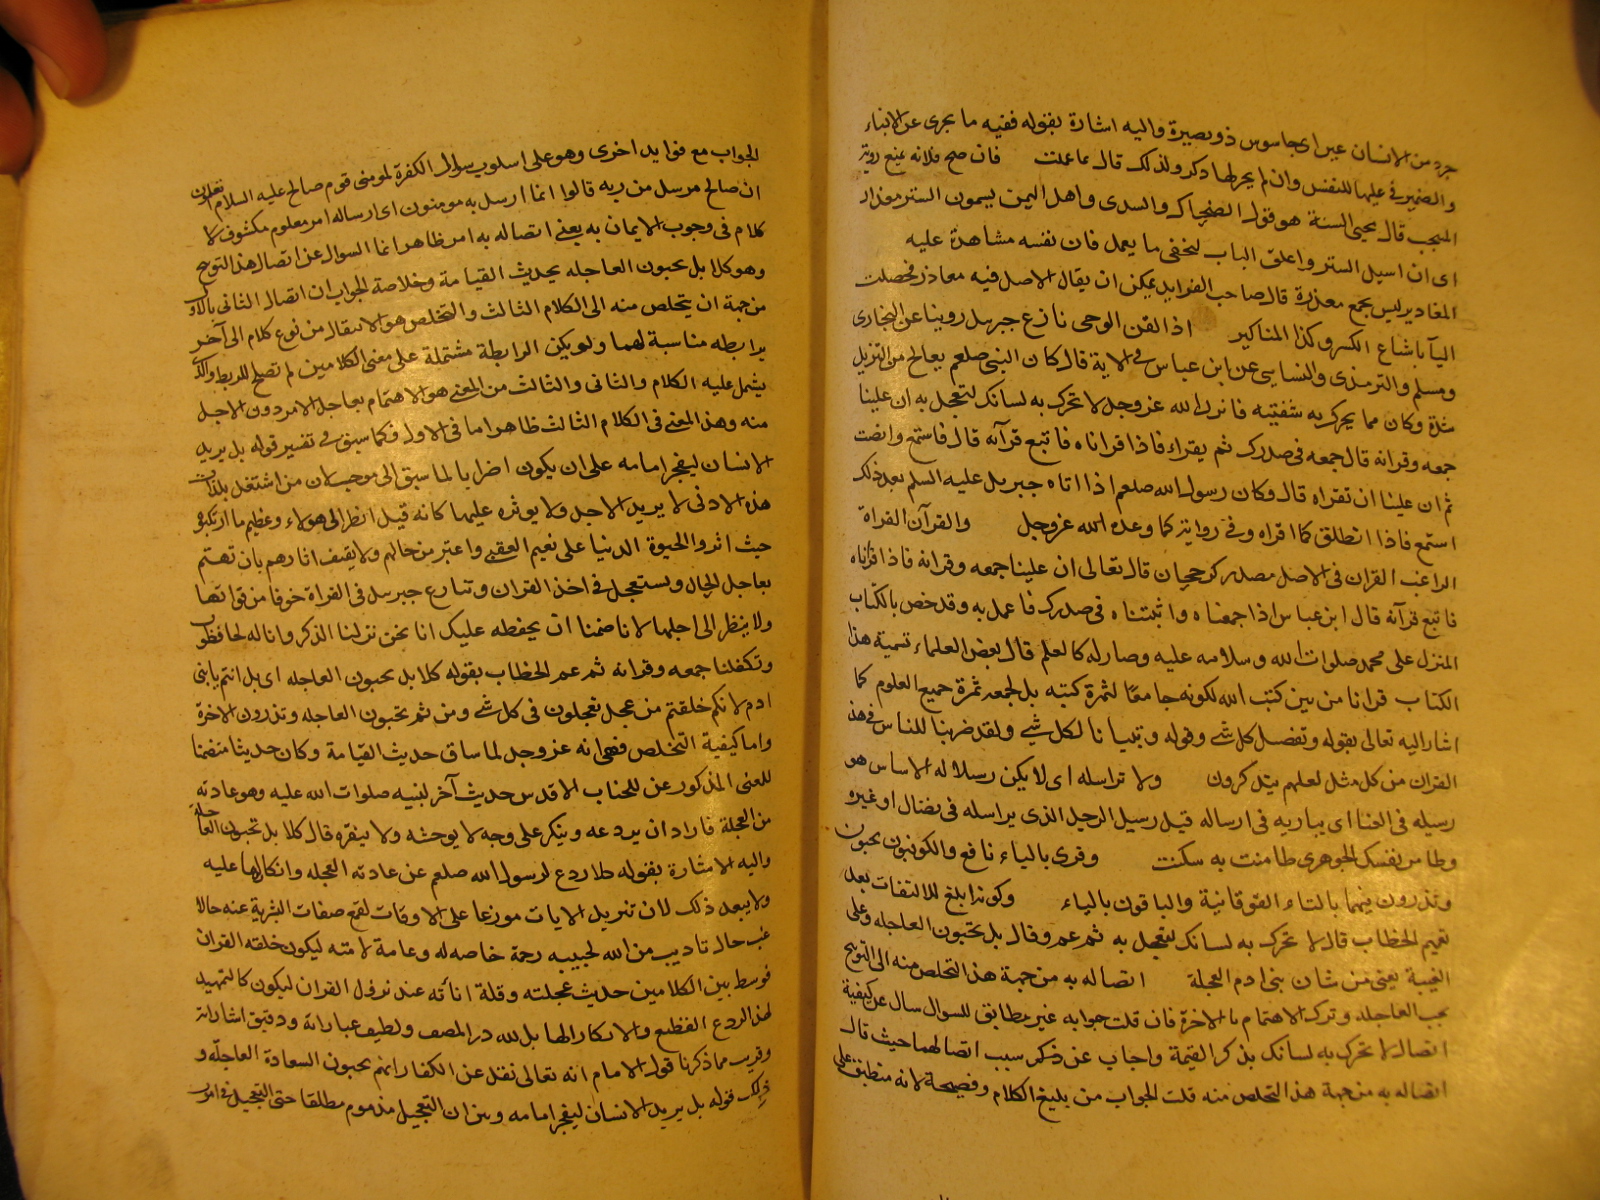 جرد من الانسان عين اى جاسوس ذو بصيرة واليه اشارة بقوله ففيه ما يجرى عن الانباء
والضمير فى عليها للنفس وان لم يجر لها ذكر ولذلك قال بما عملت فان صح فلانه يمنع روية
المحتجب قال محيى السنة هو قول الضحاك والسدى واهل اليمن يسمون الستر معذار
اى ان اسبل الستر واغلق الباب ليخفى ما يعمل فان نفسه مشاهدة عليه
المعاذير ليس بجمع معذرة قال صاحب الفرايد يمكن ان يقال الاصل فيه معاذر فحصلت
اليآ باشباع الكسر وكذا المناكير اذ القن الوحى نازع جبريل روينا عن البخارى
ومسلم والترمذى والنساىى عن ابن عباس فى الاية قال كان النبى صلعم يعالج من التنزيل
شدة وكان مما يحرك به شفتيه فانزل الله عز وجل لا تحرك به لسانك لتعجل به ان علينا
جمعه وقرانه قال جمعه فى صدرك ثم يقراء فاذا قراناه فاتبع قرآنه قال فاستمع وانصت
ثم ان علينا ان تقراه قال وكان رسول الله صلعم اذا اتاه جبريل عليه السلم بعد ذلك
استمع فاذا انطلق كما اقراه وفى رواية كما وعده الله عز وجل والقرآن القراة
الراغب القران فى الاصل مصدر كرجحان قال تعالى ان علينا جمعه وقرانه فاذا قراناه
فاتبع قرآنه قال ابن عباس اذا جمعناه واثبتناه فى صدرك فاعمل به وقد خص بالكتاب
المنزل على محمد صلوات الله وسلامه عليه وصار له كالعلم قال بعض العلماء تسمية هذا
الكتاب قرانا من بين كتب الله لكونه جامعا لثمرة كتبه بل لجمعه ثمرة جميع العلوم كما
اشار اليه تعالى بقوله وتفصيل كل شىء وقوله وتبيانا لكل شىء ولقد ضربنا للناس فى هذا
القران من كل مثل لعلهم يتذكرون ولا تراسله اى لا يكن رسلا له الاساس هو
رسيله فى الغنا اى يباريه فى ارساله قيل رسيل الرجل الذى يراسله فى نضال او غيره
وطامن نفسك الجوهرى طامنت به سكنت وقرى بالياء نافع والكوفيون تحبون
وتذرون فيهما بالتاء الفوقانية والباقون بالياء وكونه ابلغ للالتفات بعد
تعميم الخطاب قال لا تحرك به لسانك لتعجل به ثم عم وقال بل تحبون العاجله وعلى
الغيبة يعنى من شان بنى ادم العجلة اتصاله به من جهة هذا التخلص منه الى التوبيخ
بحب العاجله وترك الاهتمام بالاخرة فان قلت جوابه غير مطابق للسوال سال عن كيفية
اتصال لا تحرك به لسانك بذكر القيمة واجاب عن ذكر سبب اتصالهما حيث قال
اتصاله به من جهة هذا التخلص منه قلت الجواب من بليغ الكلام وفصيحه لانه منطبق على
الجواب مع فوايد اخرى وهو على اسلوب سوال الكفرة لمومنى قوم صالح عليه السلام اتعلمون
ان صالح مرسل من ربه قالوا انما ارسل به مومنون اى ارساله امر معلوم مكشوف لا
كلام فى وجوب الايمان به يعنى اتصاله به امر ظاهر انما السوال عن اتصال هذا التوبيخ
وهو كلا بل تحبون العاجله بحديث القيامة وخلاصة الجواب ان اتصال الثانى بالاول
من جهة ان يتخلص منه الى الكلام الثالث والتخلص هو الانتقال من نوع كلام الى آخر
برابطه مناسبة لهما ولو يكن الرابطة مشتملة على معنى الكلامين لم تصلح للربط والذى
يشمل عليه الكلام والثانى والثالث من المعنى هو الاهتمام بعاجل الامر دون الاجل
منه وهذا المعنى فى الكلام الثالث ظاهر اما فى الاول فكما سبق فى تفسير قوله بل يريد
الانسان ليفجر امامه على ان يكون اضرابا لما سبق الى موجب لان من اشتغل بلذات
هذه الادنى لا يريد الاجل ولا يوثره عليها كانه قيل انظر الى هولاء وعظيم ما ارتكبوه
حيث اثروا الحيوة الدنيا على نعيم العقبى واعتبر من حالهم ولا تقتف اثارهم بان تهتم
بعاجل الحال وتستعجل فى اخذ القران وتنازع جبرىل فى القراة خوفا من فواتها
ولا ينظر الى اجلها لانا ضمنا ان نحفظه عليك انا نحن نزلنا الذكر وانا له لحافظون
وتكفلنا جمعه وقرانه ثم عم الخطاب بقوله كلا بل تحبون العاجله اى بل انتم يا بنى
ادم لانكم خلقتم من عجل تعجلون فى كل شىء ومن ثم تحبون العاجله وتذرون الاخرة
واما كيفية التخلص فهى انه عز وجل لما ساق حديث القيامة وكان حديثا متضمنا
للمعنى المذكور عن للجناب الاقدس حديث آخر لنبيه صلوات الله عليه وهو عادته
من العجلة فاراد ان يردعه وينكر على وجه لا يوحشه ولا ينفره قال كلا بل تحبون العاجلة
واليه الاشارة بقوله كلا ردع لرسول الله صلعم عن عادته العجله وانكار لها عليه
ولا يبعد ذلك لان تنزيل الايات موزعا على الاوقات لقمع صفات البشرية عنه حالا
غب حال تاديب من الله لحبيبه رحمة خاصه له وعامة لامته ليكون خلقه القران
فوسط بين الكلامين حديث عجلته وقلة اناته عند نزول القران ليكون كالتمهيد
لهذا الردع الفظيع والانكار الها بل لله در المصنف ولطيف عباراته ودقيق اشاراته
وقريب مما ذكرنا قول الامام انه تعالى نقل عن الكفار انهم يحبون السعادة العاجله و
ذلك قوله بل يريد الانسان ليفجر امامه وبين ان التعجيل مذموم مطلقا حتى التعجيل فى امور